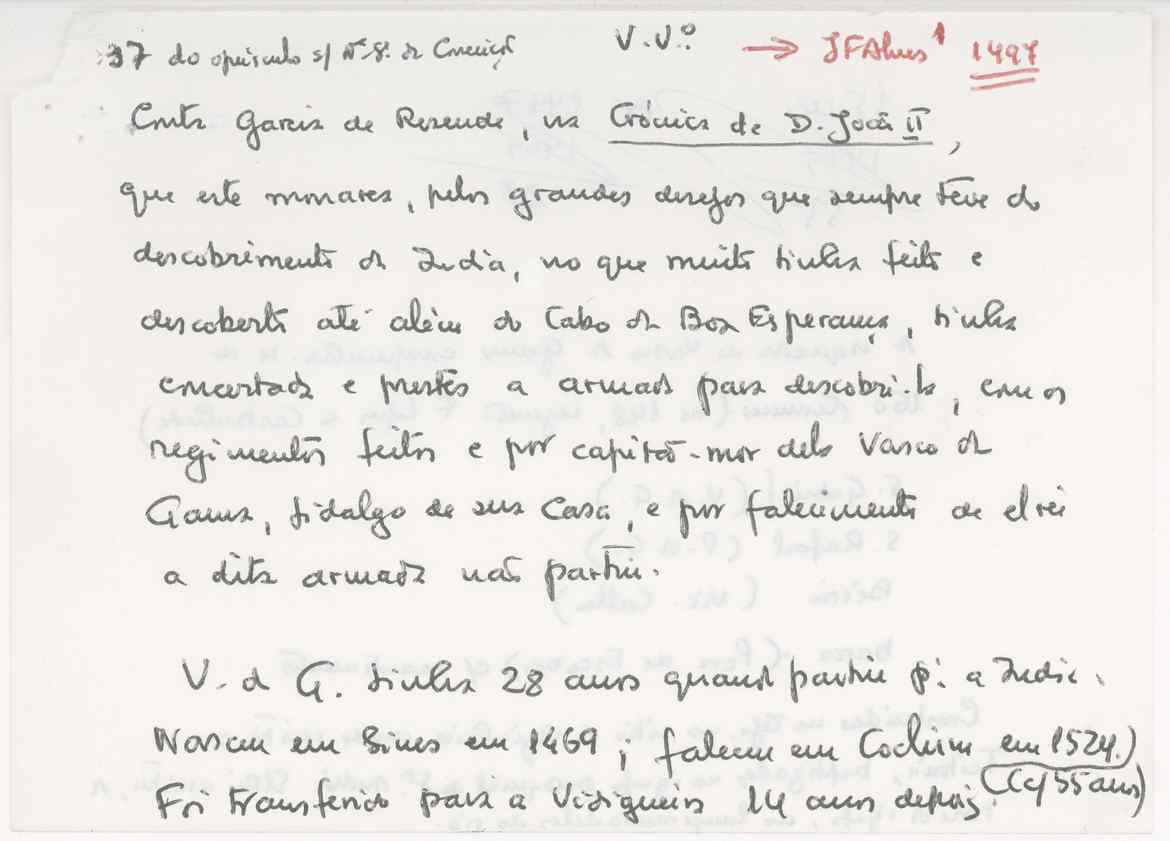 37 do opúsculo s/ Nª. Sª. da Conceição V.V.º → JFAlves 1497
Conta Garcia de Resende, na Crónica de D. João II,
que este monarca, pelos grandes desejos que sempre teve do
descobrimento da India, no que muito tinha feito e
descoberto até além do Cabo da Boa Esperança, tinha
concertada e prestes a armada para descobri-la, com os
regimentos feitos e por capitão-mor dela Vasco da
Gama, fidalgo de sua Casa, e por falecimento de el rei
a dita armada não partiu.
V. da G. tinha 28 anos quando partiu p.ª a India.
Nasceu em Sines em 1469; faleceu em Cochim em 1524.
(C/ 55 anos)
Foi transferido para a Vidigueira 14 anos depois.